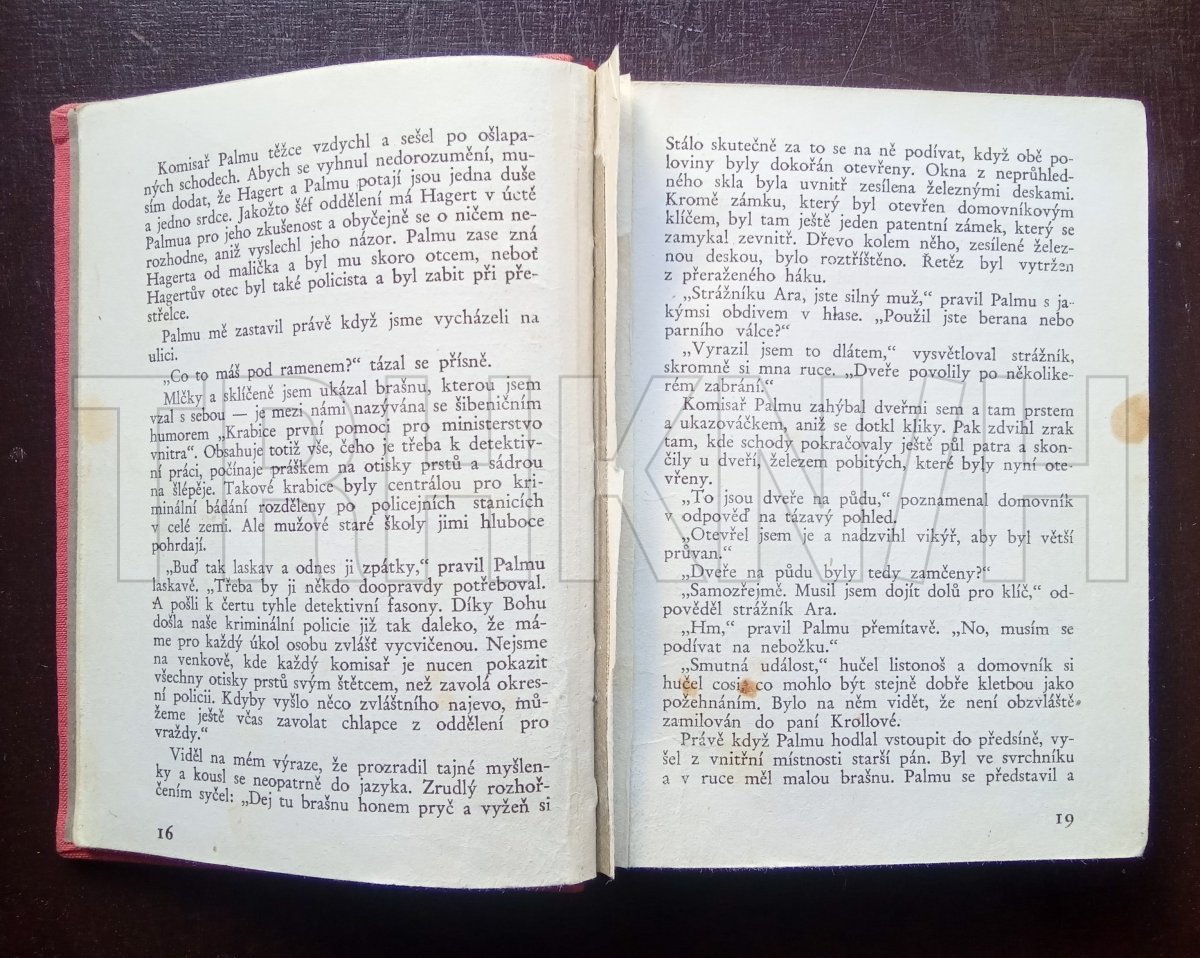 Komisař Palmu těžce vzdychl a sešel po ošlapa-
ných schodech. Abych se vyhnul nedorozumění, mu-
sím dodat, že Hagert a Palmu potají jsou jedna duše
a jedno srdce. Jakožto šéf oddělení má Hagert v úctě
Palmua pro jeho zkušenost a obyčejně se o ničem ne-
rozhodne, aniž vyslechl jeho názor. Palmu zase zná
Hagerta od malička a byl mu skoro otcem, neboť
Hagertův otec byl také policista a byl zabit při pře-
střelce.
Palmu mě zastavil právě když jsme vycházeli na
ulici.
„Co to máš pod ramenem?“ tázal se přísně.
Mlčky a sklíčeně jsem ukázal brašnu, kterou jsem
vzal s sebou — je mezi námi nazývána se šibeničním
humorem „Krabice první pomoci pro ministerstvo
vnitra“. Obsahuje totiž vše, čeho je třeba k detektiv-
ní práci, počínaje práškem na otisky prstů a sádrou
na šlépěje. Takové krabice byly centrálou pro kri-
minální bádání rozděleny po policejních stanicích
v celé zemi. Ale mužové staré školy jimi hluboce
pohrdají.
„Buď tak laskav a odnes ji zpátky,“ pravil Palmu
laskavě. „Třeba by ji někdo doopravdy potřeboval.
A pošli k čertu tyhle detektivní fasony. Díky Bohu
došla naše kriminální policie již tak daleko, že má-
me pro každý úkol osobu zvlášť vycvičenou. Nejsme
na venkově, kde každý komisař je nucen pokazit
všechny otisky prstů svým štětcem, než zavolá okres-
ní policii. Kdyby vyšlo něco zvláštního najevo, mů-
žeme ještě včas zavolat chlapce z oddělení pro
vraždy.“
Viděl na mém výraze, že prozradil tajné myšlen-
ky a kousl se neopatrně do jazyka. Zrudlý rozhoř-
čením syčel: „Dej tu brašnu honem pryč a vyžeň si
16
Stálo skutečně za to se na ně podívat, když obě po-
loviny byly dokořán otevřeny. Okna z neprůhled-
ného skla byla uvnitř zesílena železnými deskami.
Kromě zámku, který byl otevřen domovníkovým
klíčem, byl tam ještě jeden patentní zámek, který se
zamykal zevnitř. Dřevo kolem něho, zesílené želez-
nou deskou, bylo roztříštěno. Řetěz byl vytržen
z přeraženého háku.
„Strážníku Ara, jste silný muž,“ pravil Palmu s ja-
kýmsi obdivem v hlase. „Použil jste berana nebo
parního válce?“
„Vyrazil jsem to dlátem,“ vysvětloval strážník,
skromně si mna ruce. „Dveře povolily po několike-
rém zabrání.“
Komisař Palmu zahýbal dveřmi sem a tam prstem
a ukazováčkem, aniž se dotkl kliky. Pak zdvihl zrak
tam, kde schody pokračovaly ještě půl patra a skon-
čily u dveří, železem pobitých, které byly nyní ote-
vřeny.
„To jsou dveře na půdu,“ poznamenal domovník
v odpověď na tázavý pohled.
„Otevřel jsem je a nadzvihl vikýř, aby byl větší
průvan.“
„Dveře na půdu byly tedy zamčeny?“
„Samozřejmě. Musil jsem dojít dolů pro klíč,“ od-
pověděl strážník Ara.
„Hm,“ pravil Palmu přemítavě. „No, musím se
podívat na nebožku.“
„Smutná událost,“ hučel listonoš a domovník si
hučel cosi, co mohlo být stejně dobře kletbou jako
požehnáním. Bylo na něm vidět, že není obzvláště
zamilován do paní Krollové.
Právě když Palmu hodlal vstoupit do předsíně, vy-
šel z vnitřní místnosti starší pán. Byl ve svrchníku
a v ruce měl malou brašnu. Palmu se představil a
19